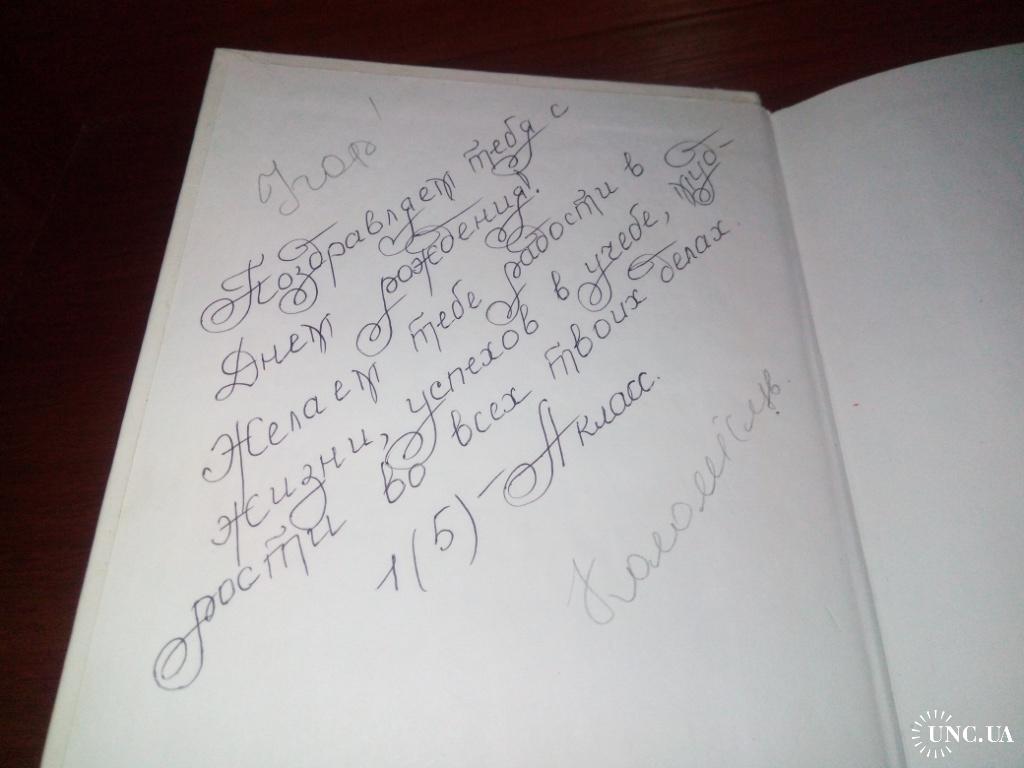 Ігор!
Поздравляем тебя с
Днем рождения!
Желаем тебе радости в
жизни, успехов в учебе, муд-
рости во всех твоих делах.
1(5)-А класс.
UNC.UA